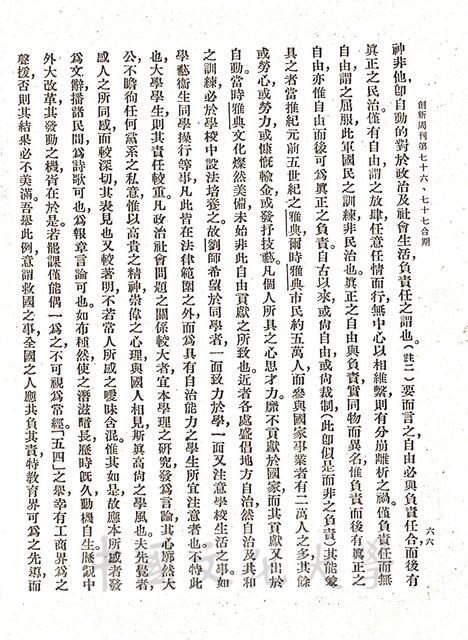 創新周刊第七十六、七十七合期
六六
神非他卽自動的對於政治及社會生活負責任之謂也。(註二)要而言之自由必與負責任合而後有
眞正之民治。僅有自由謂之放肆任意任情而行無中心以相維繫則有分崩離析之禍。僅負責任而無
自由謂之屈服此軍國民之訓練非民治也。眞正之自由與負責實同物而異名惟負責而後有眞正之
自由亦惟自由而後可爲眞正之負責。自古以來或尙自由或尙裁制(此卽似是而非之負責)其能兼
具之者當推紀元前五世紀之雅典爾時雅典市民約五萬人而參與國家事業者有二萬人之多其餘
或勞心或勞力或慷慨輸金或發抒技藝。凡個人所具之心思才力靡不貢獻於國家而其貢獻又出於
自動當時雅典文化燦然美備未始非此自由貢獻之所致也。近者各處盛倡地方自治然自治及共和
之訓練必於學校中設法培養之故劉師希望於同學者一而致力於學一而又注意學校生活之事如
學藝衛生同學操行等事凡此皆在法律範圍之外而爲具有自治能力之學生所宜注意者也不特此
也大學學生則其責任較重凡政治社會問題之關係較大者宜本學理之研究發爲言論其心廓然大
公不瞻徇任何黨系之私意惟以高貴之精神崇偉之心理與國人相見斯眞高尙之學風也夫先覺者,
感人之所同感而較深切其表見也又較著明不若常人所感之曖昧含混惟其如是故應本所感者發
爲文辭播諸民間爲詩歌可也爲報章言論可也如布種然使之潛滋暗長歷時旣久動機自生歷觀中
外大改革其發動之機皆在於是若罷課僅能偶一爲之不可視爲常經「五四」之舉幸有工商界爲之
聲援否則其結果必不美滿吾舉此例意謂救國之事全國之人應共負其責特敎育界可爲之先導而
中國文化大學